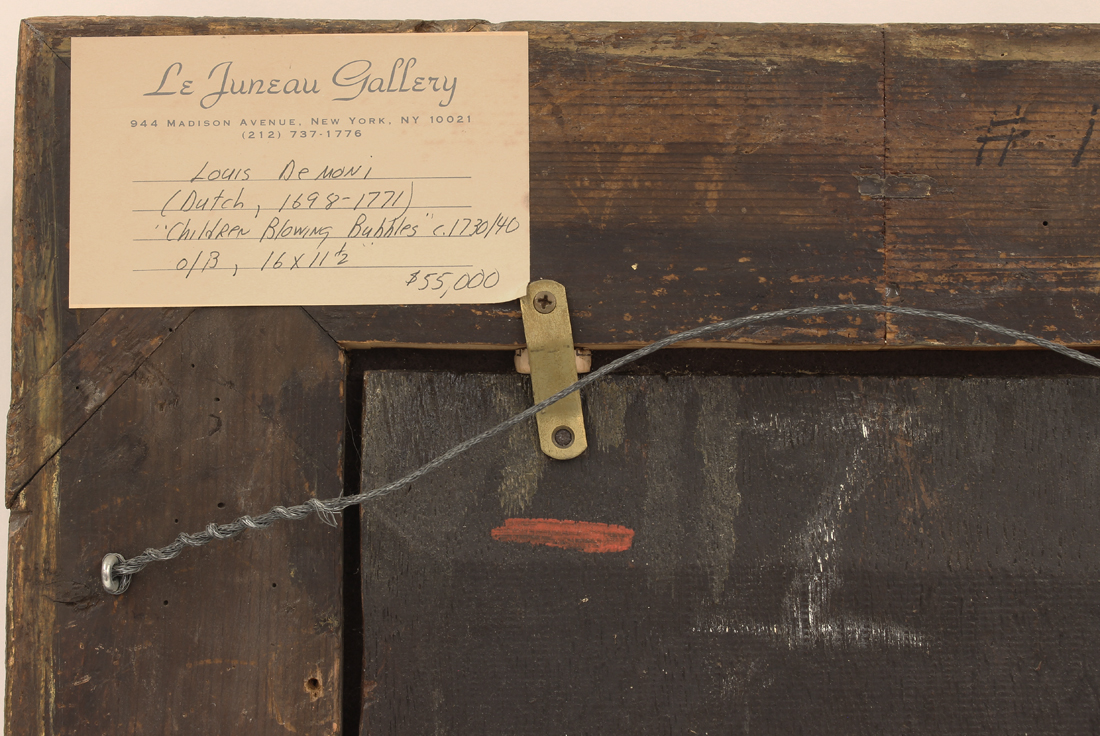 Le Juneau Gallery
944 Madison Avenue, New York, NY 10021
(212) 737-1776
Louis De Moni
(Dutch, 1698-1771)
"Children Blowing Bubbles" c.1730/40
o/B, 16 x 11 1/2"
$55,000
# 1